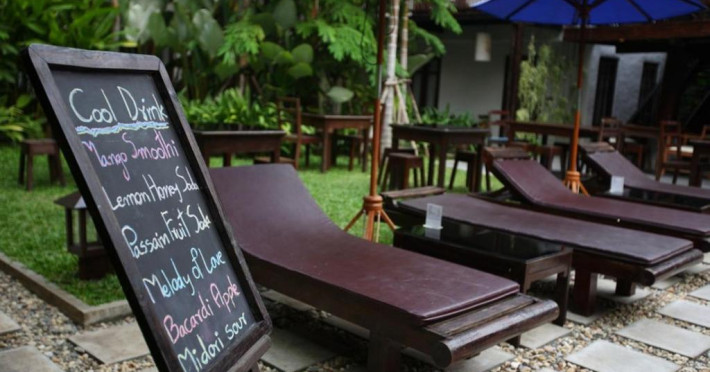 Cool Drink
Mango Smoothi
Lemon Honey Soda
Passain Fruit Soda
Melody of Love
Bacardi Apple
Midori sour